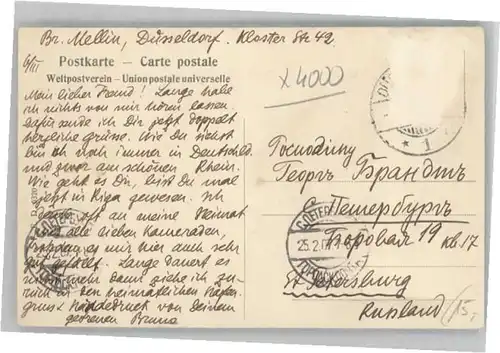 Br. Mellin, Düsseldorf. Kloster Str 42.
6/III
Postkarte — Carte postale
Weltpostverein — Union postale universelle
x4000
Mein lieber Freund! Lange habe
ich nichts von mir hören lassen
dafür sende ich Dir jetzt doppelt
herzliche grüsse. Wie Du siehst
bin ich noch immer in Deutschld.
und zwar am schönen Rhein.
Wie geht es Dir, bist Du mal
jetzt in Riga gewesen. Ich
denke oft an meine Heimat
und alle lieben Kameraden,
trotzdem es mir hier auch sehr
gut gefällt. Lange dauert es
nicht mehr dann ziehe ich zu-
rück in den heimatlichen Hafen.
gruss & Händedruck von Deinem
getreuen Bruno
Господину
Георгъ Брандтъ
Петербургъ
Торговая 19 кв 17
St. Petersburg
Russland
15,-
25.2